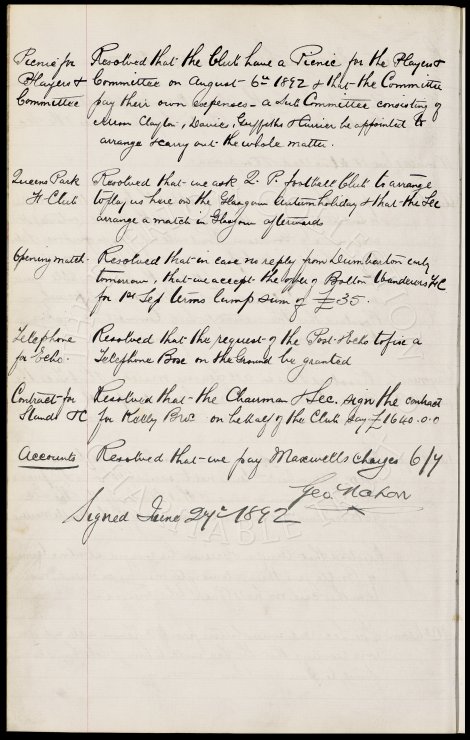 Picnic for Resolved that the Club have a Picnic for the Players &
Players & Committee on August 6th 1892 & that the Committee
Committee pay their own expenses - a Sub Committee consisting of
Messrs Clayton, Davies, Griffiths & Currier be appointed to
arrange & carry out the whole matter.
Queens Park Resolved that we ask Q. P. football Club to arrange
Ft Club to play us here on the Glasgow Autumn holiday & that the Sec
arrange a match in Glasgow afterward
Opening match. Resolved that in case no reply from Dumbarton early
tomorrow, that we accept the offer of Bolton Wanderers FC
for 1st Sep terms lump sum of £35.
Telephone Resolved that the request of the Post & Echo to fix a
for Echo. Telephone Box on the Ground be granted
Contract for Resolved that the Chairman & Sec. sign the contract
Stands &c for Kelly Bros on behalf of the Club say £1640.0.0
Accounts Resolved that we pay Maxwells charges 6/7
Geo Mahon
Signed June 27th 1892